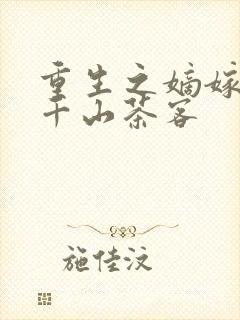 重生之嫡嫁
千山茶客
施佳汶